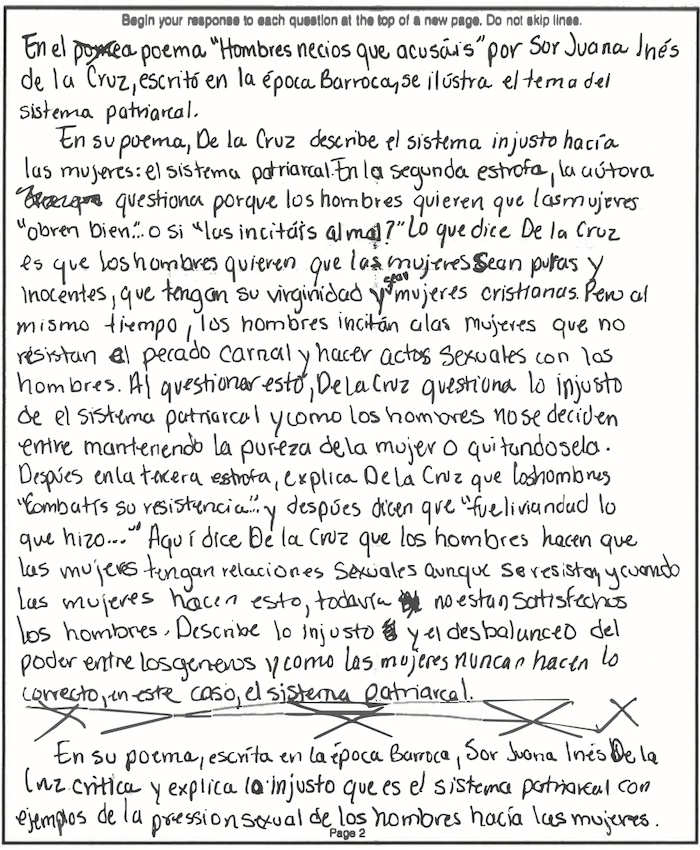 Begin your response to each question at the top of a new page. Do not skip lines.
En el poema "Hombres necios que acusáis" por Sor Juana Inés
de la Cruz, escritó en la época Barroca, se ilústra el tema del
sistema patriarcal.
En su poema, De la Cruz describe el sistema injusto hacía
las mujeres: el sistema patriarcal. En la segunda estrofa, la aútora
questiona porque los hombres quieren que las mujeres
"obren bien..." o si "las incitáis al mal?" Lo que dice De la Cruz
es que los hombres quieren que las mujeres sean puras y
inocentes, que tengan su virginidad y sean mujeres cristianas. Pero al
mismo tiempo, los hombres incitán a las mujeres que no
resistan el pecado carnal y hacer actos sexuales con los
hombres. Al questionar esto, De la Cruz questiona lo injusto
de el sistema patriarcal y como los hombres no se deciden
entre manteniendo la pureza de la mujer o quitandosela.
Despúes en la tercera estrofa, explica De la Cruz que los hombres
"Combatís su resistencia..." y despúes dicen que "fue liviandad lo
que hizo..." Aquí dice De la Cruz que los hombres hacen que
las mujeres tengan relaciones sexuales aunque se resistan, y cuando
las mujeres hacen esto, todavía no estan satisfechos
los hombres. Describe lo injusto y el desbalanceo del
poder entre los generos y como las mujeres nuncan hacen lo
correcto, en este caso, el sistema patriarcal.
En su poema, escrita en la época Barroca, Sor Juana Inés De la
Cruz critica y explica lo injusto que es el sistema patriarcal con
ejemplos de la pression sexual de los hombres hacía las mujeres.
Page 2